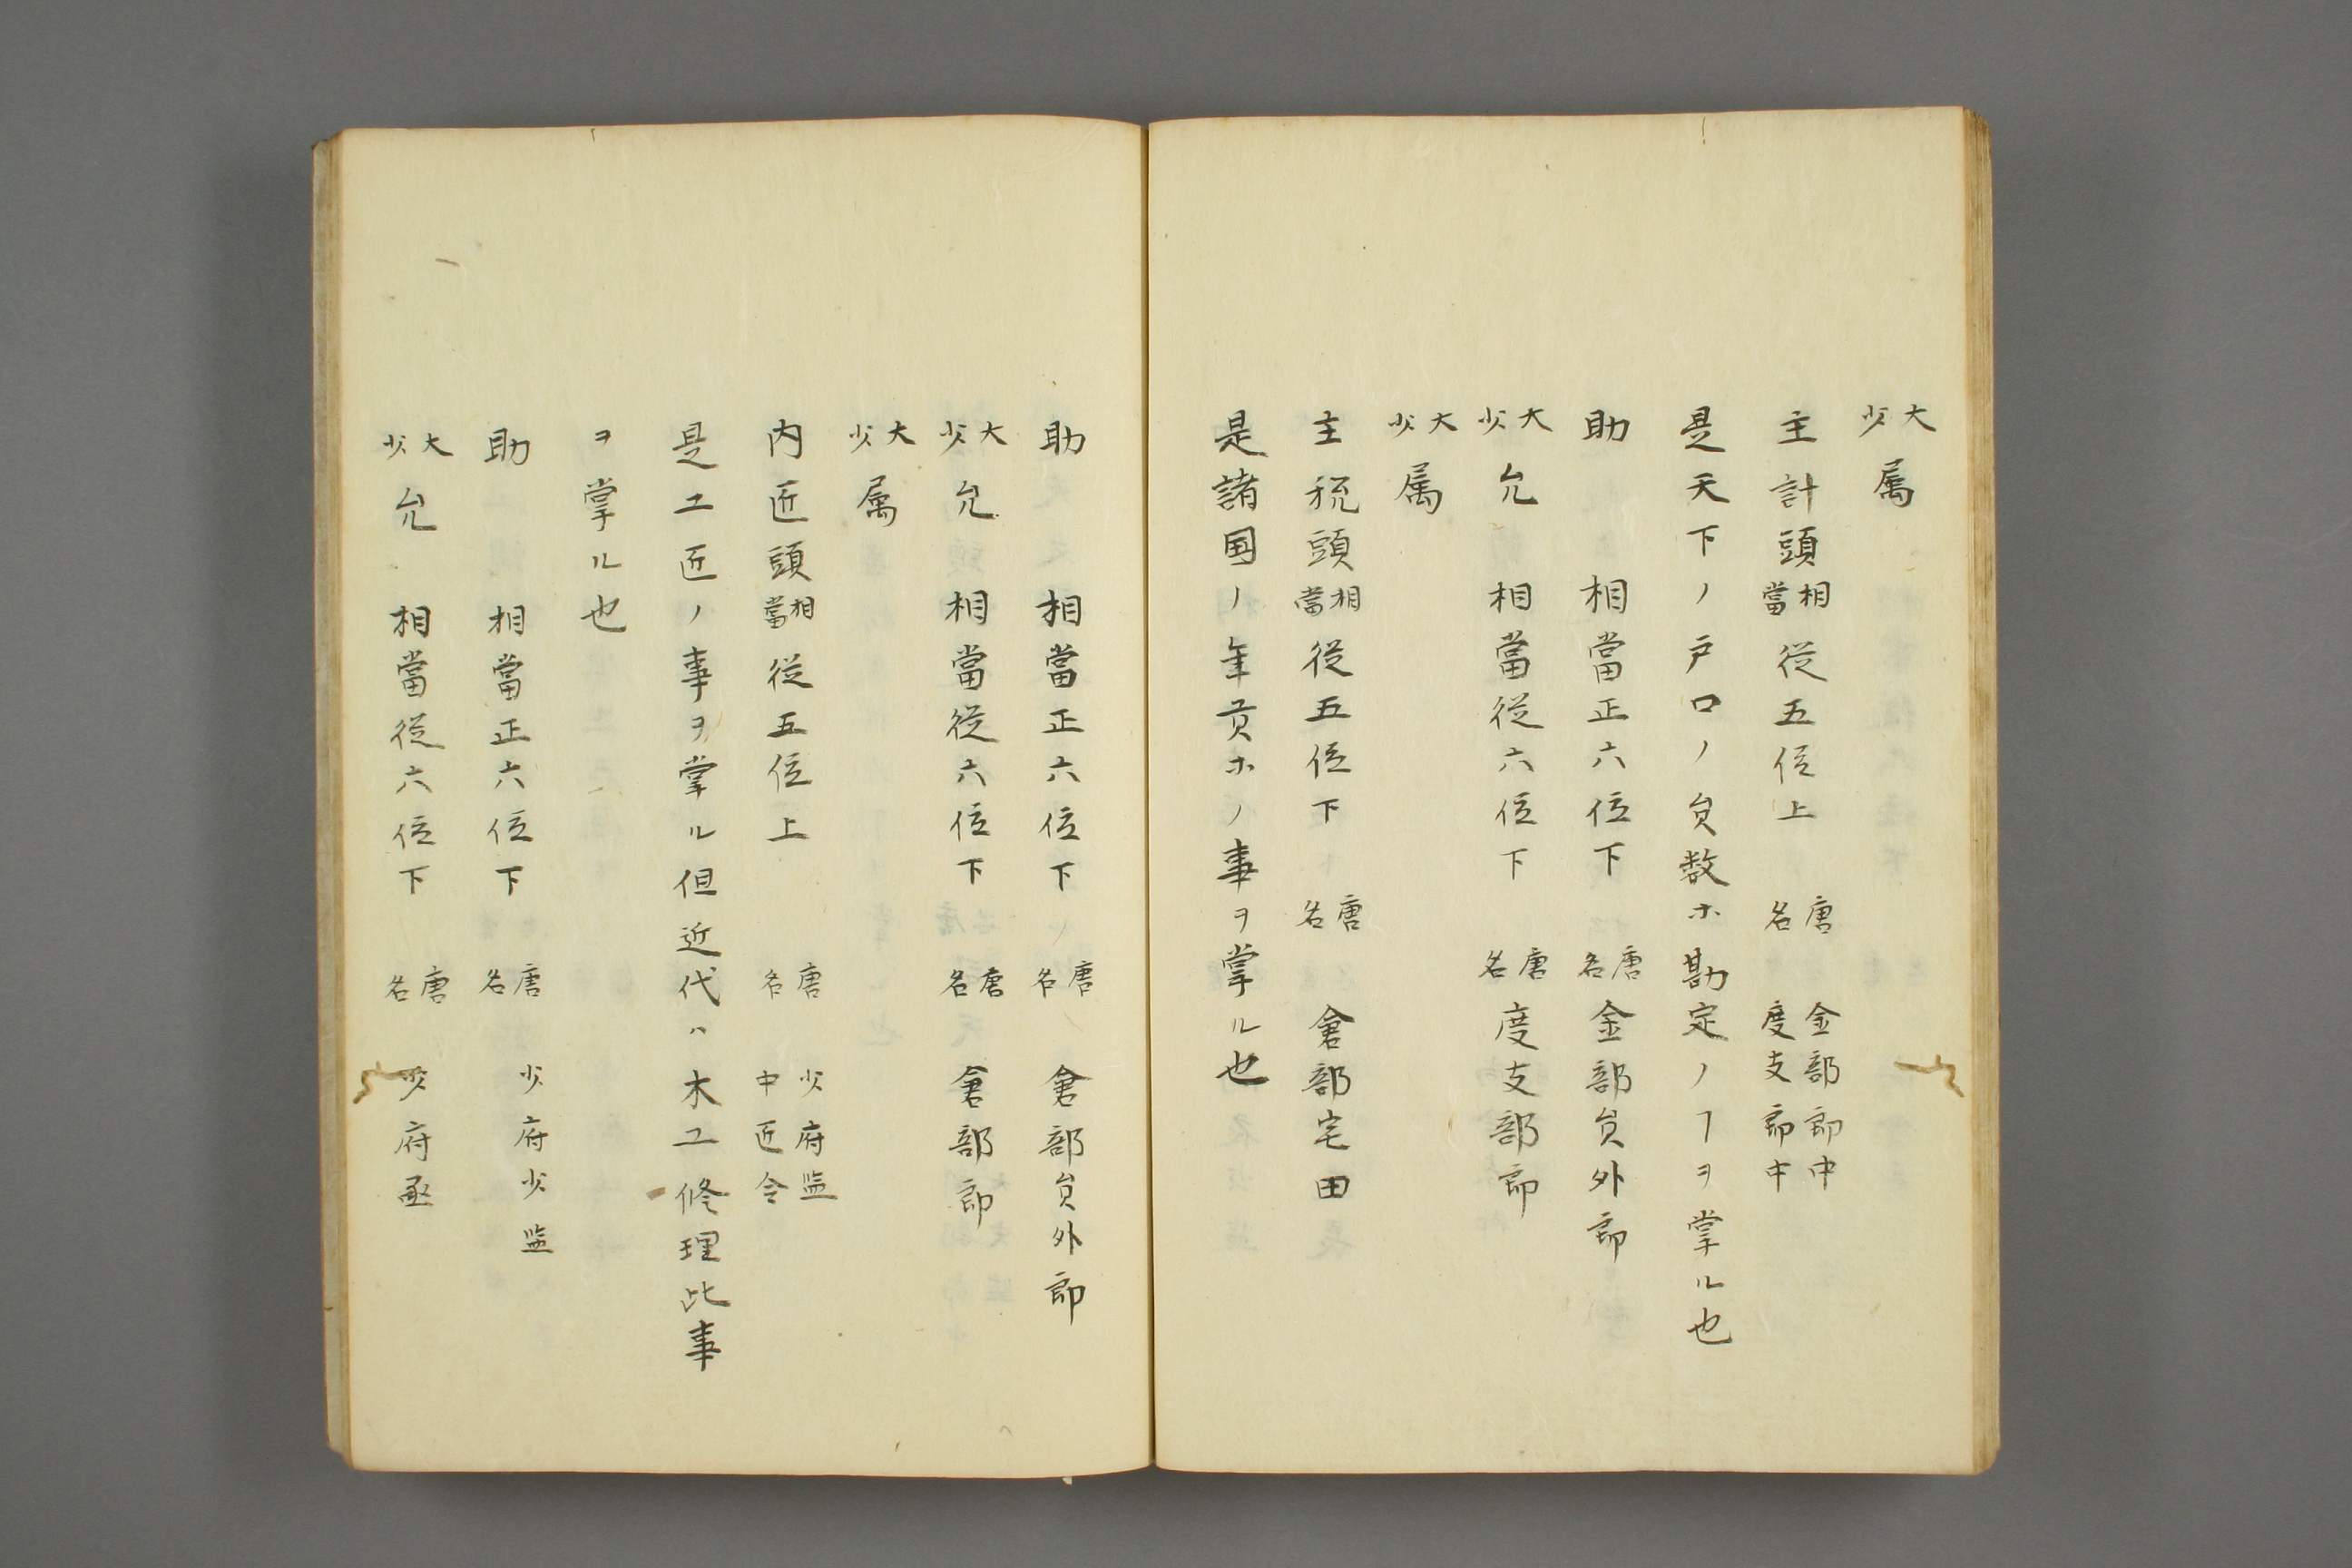 大少属
主計頭相當従五位上 唐名 金部郎中 度支郎中
是天下ノ戸口ノ員数ホ勘定ノヿヲ掌ル也
助 相當正六位下 唐名 金部員外郎
大少允 相當従六位下 唐名 度支部郎
大少属
主税頭相當従五位下 唐名 倉部宅田
是諸国ノ年貢ホノ事ヲ掌ル也
助 相當正六位下 唐名 倉部員外郎
大少允 相當従六位下 唐名 倉部郎
大少属
内匠頭相當従五位上 唐名 少府監 中匠令
是工匠ノ事ヲ掌ル但近代ハ木工修理此事
ヲ掌ル也
助 相當正六位下 唐名 少府少監
大少允 相當従六位下 唐名 少府丞